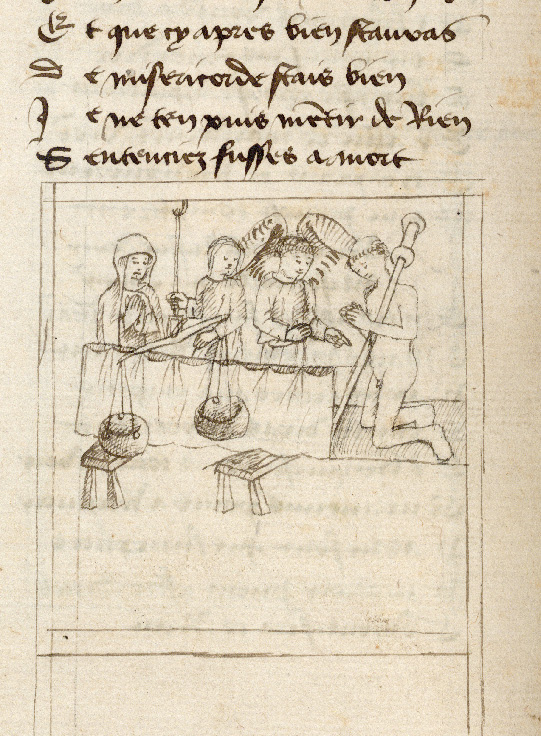 Et que cy apres bien scauras
De misericorde scais bien
Je ne ten puis mẽtir de Rien
Sentenciez fusses a mort